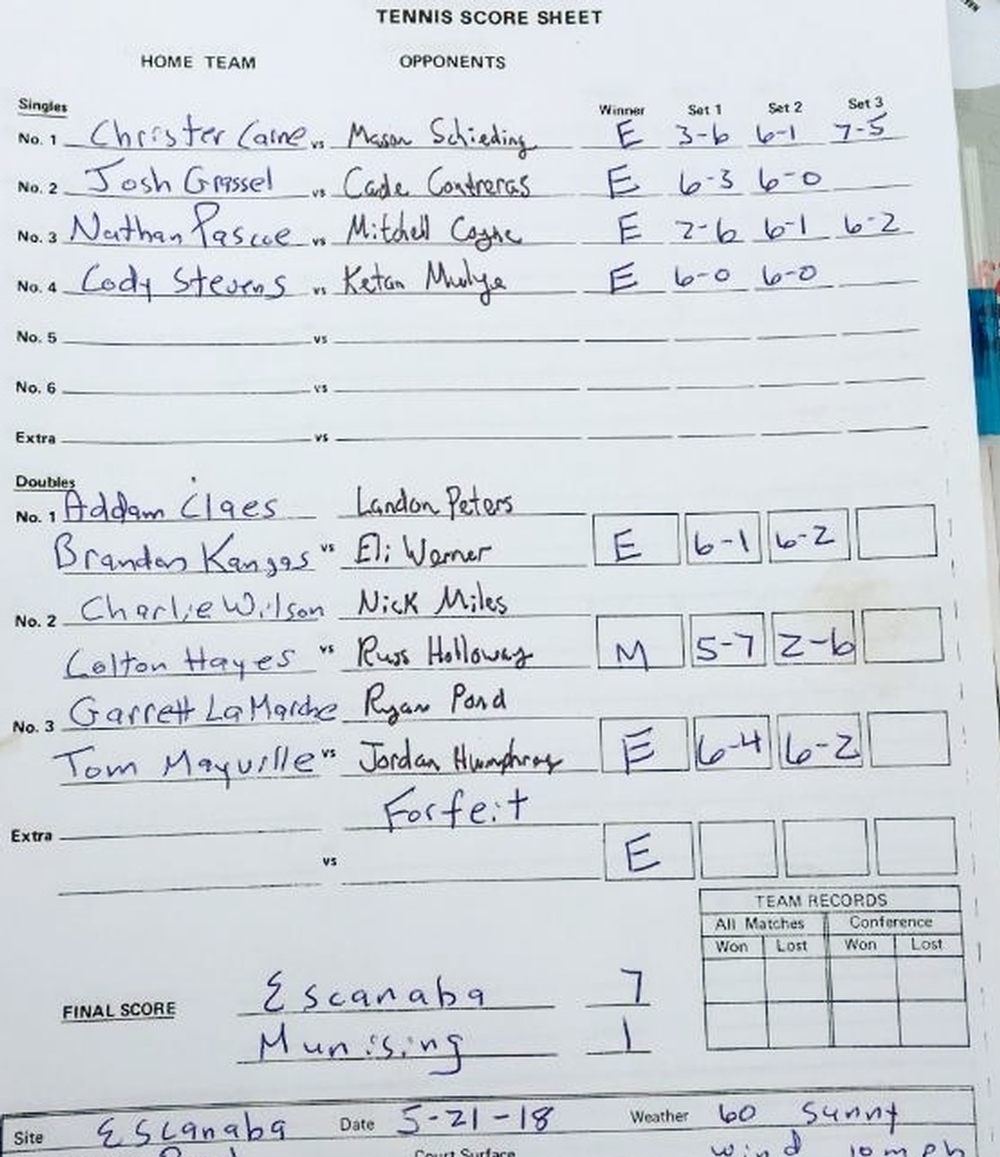 TENNIS SCORE SHEET
HOME TEAM OPPONENTS
Singles Winner Set 1 Set 2 Set 3
No. 1 Christer Caine vs Mason Schieding E 3-6 6-1 7-5
No. 2 Josh Grassel vs Cade Contreras E 6-3 6-0
No. 3 Nathan Pascoe vs Mitchell Coyne E 2-6 6-1 6-2
No. 4 Cody Stevens vs Ketan Mulye E 6-0 6-0
No. 5 vs
No. 6 vs
Extra vs
Doubles
No. 1 Addam Claes Landon Peters
Brandon Kangas vs Eli Werner E 6-1 6-2
No. 2 Charlie Wilson Nick Miles
Colton Hayes vs Russ Holloway M 5-7 2-6
No. 3 Garrett LaMarche Ryan Pond
Tom Mayville vs Jordan Humphrey E 6-4 6-2
Extra Forfeit
vs E
TEAM RECORDS
All Matches Conference
Won Lost Won Lost
FINAL SCORE Escanaba 7
Munising 1
Site Escanaba Date 5-21-18 Weather 60 Sunny
Court Surface wind 10 mph